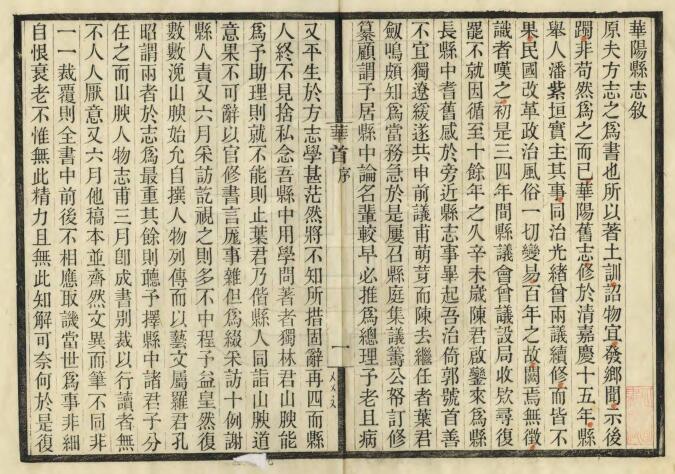 華陽縣志敘
原夫方志之爲書也所以著土訓詔物宜發鄉聞示後
躅非苟然爲之而已華陽舊志修於清嘉慶十五年縣
舉人潘紫垣實主其事同治光緒曾兩議續修而皆不
果民國改革政治風俗一切變易百年之故闕焉無徵
識者嘆之初是三四年間縣議會曾議設局收欵尋復
罷不就因循至十餘年之久辛未歲陳君啟鑾來爲縣
長縣中耆舊感於旁近縣志事畢起吾治倚郭號首善
不宜獨遼緩遂共申前議甫萌芽而陳去繼任者葉君
劔鳴頗知爲當務急於是屢召縣庭集議籌公帑訂修
纂顧謂予居縣中論名輩較早必推爲總理予老且病
華首 序
一
又平生於方志學甚茫然將不知所措固辭再四而縣
人終不見捨私念吾縣中用學問著者獨林君山腴能
爲予助理則就不能則止葉君乃偕縣人同詣山腴道
意果不可辭以官修書言厖事雜但爲綴采訪十例謝
縣人責又六月采訪訖視之則多不中程予益皇然復
數數浼山腴始允自撰人物列傳而以藝文屬羅君孔
昭謂兩者於志爲最重其餘則聽予擇縣中諸君子分
任之而山腴人物志甫三月卽成書别裁以行讀者無
不人人厭意又六月他稿本並齊然文異而筆不同非
一一裁覆則全書中前後不相應取譏當世爲事非細
自恨衰老不惟無此精力且無此知解可奈何於是復